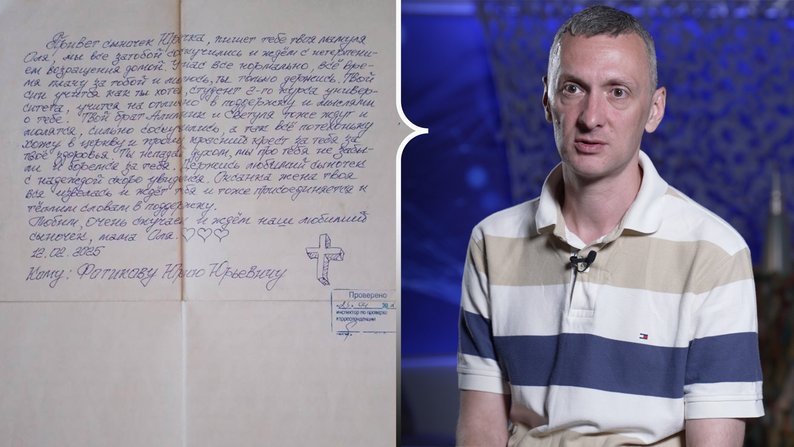 Привет сыночек Юрочка, пишет тебе твоя мамуля
Оля, мы все затобой соскучились и ждём с нетерпени-
ем возращения домой. У нас все нормально, всё вре-
мя плачу за тобой и молюсь, ты только держись. Твой
син учится как ты хотел, студент 2-го курса универ-
ситета, учится на отлично в поддержку и мыслями
о тебе. Твой брат и Светуля тоже ждут и
молятся, сильно соскучились, а так всё потехоньку
хожу в церкву и прошу красний крест за тебя за
твоё здоровья. Ты непадай духом, мы про тебя не забы-
ли и боремся за тебя. Держись любимий сыночек
с надеждой скоро увидется. Оксанка жена твоя
вся извелась и ждёт тебя и тоже присоединяется к
тёплим словам в поддержку.
Любим, очень скучаем и ждём наш любимий
сыночек, мама Оля ♡♡♡
12.02.2025
Кому: Фотикову Юрию Юрьевичу
Проверено
инспектор по проверке
корреспонденции